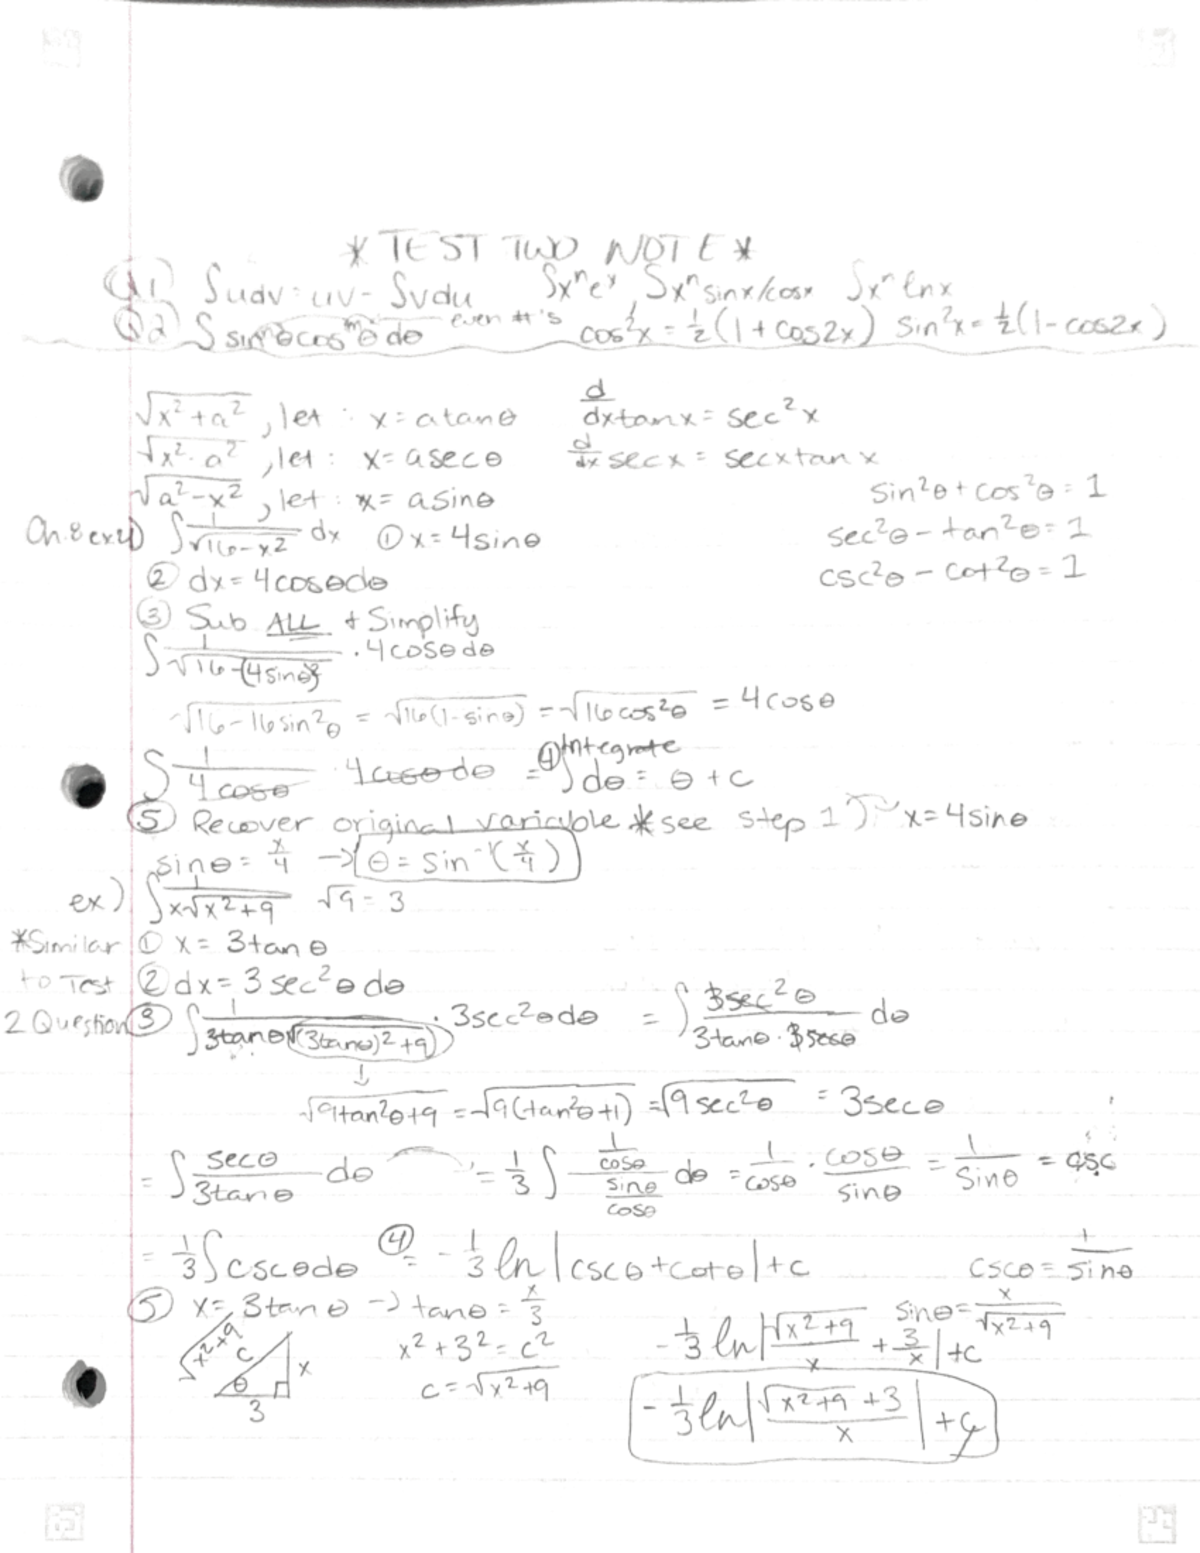 * TEST TWO NOTE *
Q1) ∫udv = uv - ∫vdu ∫xⁿeˣ, ∫xⁿ sinx/cosx ∫xⁿ lnx
Q2 ∫ sinⁿθcosᵐθ dθ even #'s cos²x = 1/2(1 + cos2x) sin²x = 1/2(1 - cos2x)
√(x² + a²), let : x = a tanθ d/dx tanx = sec²x
√(x² - a²), let : x = a secθ d/dx secx = secx tanx
√(a² - x²), let : x = a sinθ sin²θ + cos²θ = 1
Ch.8 ex4) ∫ 1/√(16 - x²) dx ① x = 4sinθ sec²θ - tan²θ = 1
② dx = 4cosθdθ csc²θ - cot²θ = 1
③ Sub ALL + Simplify
∫ 1/√(16 - (4sinθ)²) · 4cosθdθ
√(16 - 16sin²θ) = √(16(1 - sinθ)) = √(16cos²θ) = 4cosθ
∫ 1/(4cosθ) · 4cosθdθ = ④ Integrate ∫dθ = θ + c
⑤ Recover original variable * see step 1 x = 4sinθ
sinθ = x/4 → θ = sin⁻¹(x/4)
ex) ∫ 1/(x√(x² + 9)) √9 = 3
*Similar ① x = 3tanθ
to Test ② dx = 3sec²θdθ
2 Question ③ ∫ 1/(3tanθ√((3tanθ)² + 9)) · 3sec²θdθ = ∫ 3sec²θ/(3tanθ · 3secθ) dθ
↓
√(9tan²θ + 9) = √(9(tan²θ + 1)) = √(9sec²θ) = 3secθ
= ∫ secθ/(3tanθ) dθ = 1/3 ∫ (1/cosθ)/(sinθ/cosθ) dθ = 1/cosθ · cosθ/sinθ = 1/sinθ = csc
= 1/3∫cscθdθ ④ = -1/3 ln|cscθ + cotθ| + c cscθ = 1/sinθ
⑤ x = 3tanθ → tanθ = x/3 sinθ = x/√(x² + 9)
√(x² + 9) c θ x 3 x² + 3² = c² -1/3 ln|√(x² + 9)/x + 3/x| + c
c = √(x² + 9)
-1/3 ln|(√(x² + 9) + 3)/x| + c